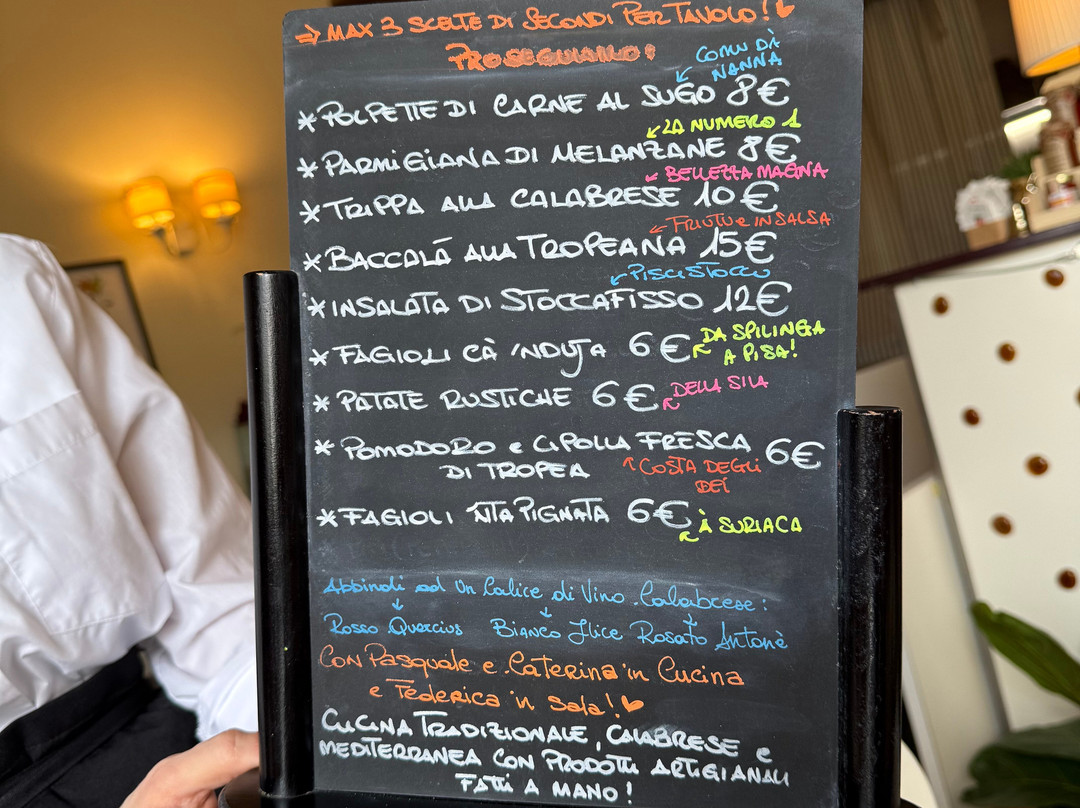 ⇒ MAX 3 SCELTE DI SECONDI PER TAVOLO!
PROSEGUIAMO!
COMU DÀ NANNA
* POLPETTE DI CARNE AL SUGO 8€
LA NUMERO 1
* PARMIGIANA DI MELANZANE 8€
BELLEZZA MAGNA
* TRIPPA ALLA CALABRESE 10€
FRIUTU e IN SALSA
* BACCALÁ ALLA TROPEANA 15€
PISCISTOCCU
* INSALATA DI STOCCAFISSO 12€
* FAGIOLI CÀ 'NDUJA 6€ DA SPILINGA
A PISA!
* PATATE RUSTICHE 6€ DELLA SILA
* POMODORO e CIPOLLA FRESCA 6€
DI TROPEA COSTA DEGLI
DEI
* FAGIOLI NTA PIGNATA 6€ À SURIACA
Abbinali ad un Calice di Vino Calabrese:
Rosso Quercius Bianco Ilice Rosato Antonè
CON Pasquale e Caterina in Cucina
e Federica in Sala!
CUCINA TRADIZIONALE, CALABRESE e
MEDITERRANEA CON PRODOTTI ARTIGIANALI
FATTI A MANO!